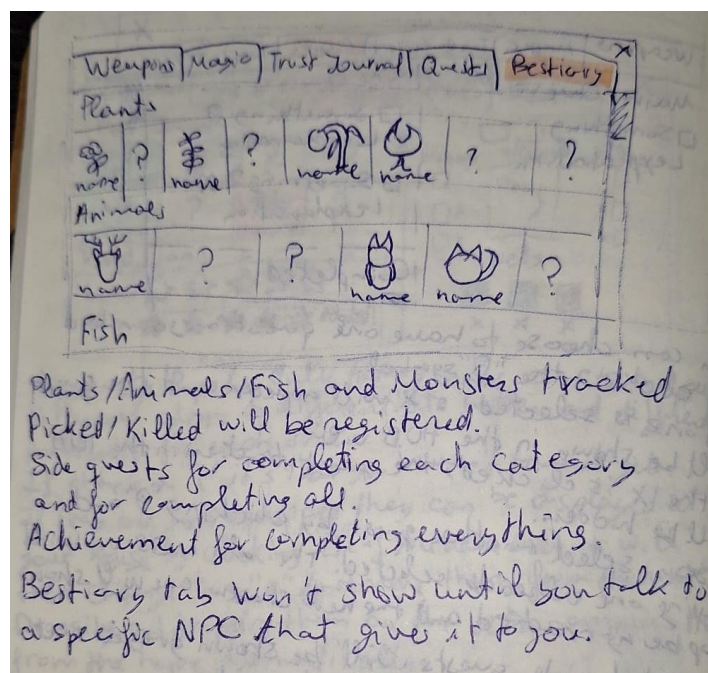 Weapons Magic Trust Journal Quests Bestiary X
Plants
? ? ? ?
name name name name
Animals
? ? ?
name name name
Fish
Plants/Animals/Fish and Monsters tracked
Picked/Killed will be registered.
Side quests for completing each category
and for completing all.
Achievement for completing everything.
Bestiary tab won't show until you talk to
a specific NPC that gives it to you.